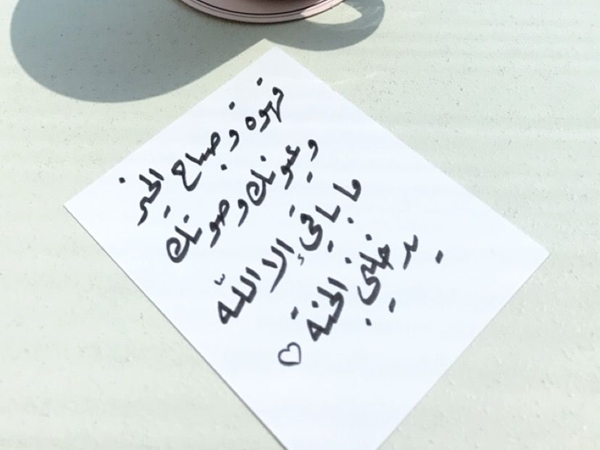 قهوة و صباح الخير
وعيونك وصوتك
ما باقي إلا الله
يدخلني الجنة ♡